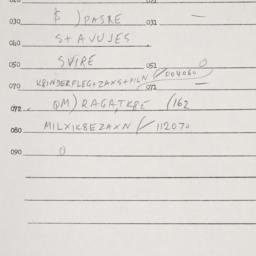 030 $ ) PASRE 031 —
040 S+AVUJES
050 SVIRE 051 0
070 K8INDERFLEG+ZAXS+MLN /004060 071 —
072 QM) RAGATK8E (162
080 MILXIK8EZAXN /112070
090 0